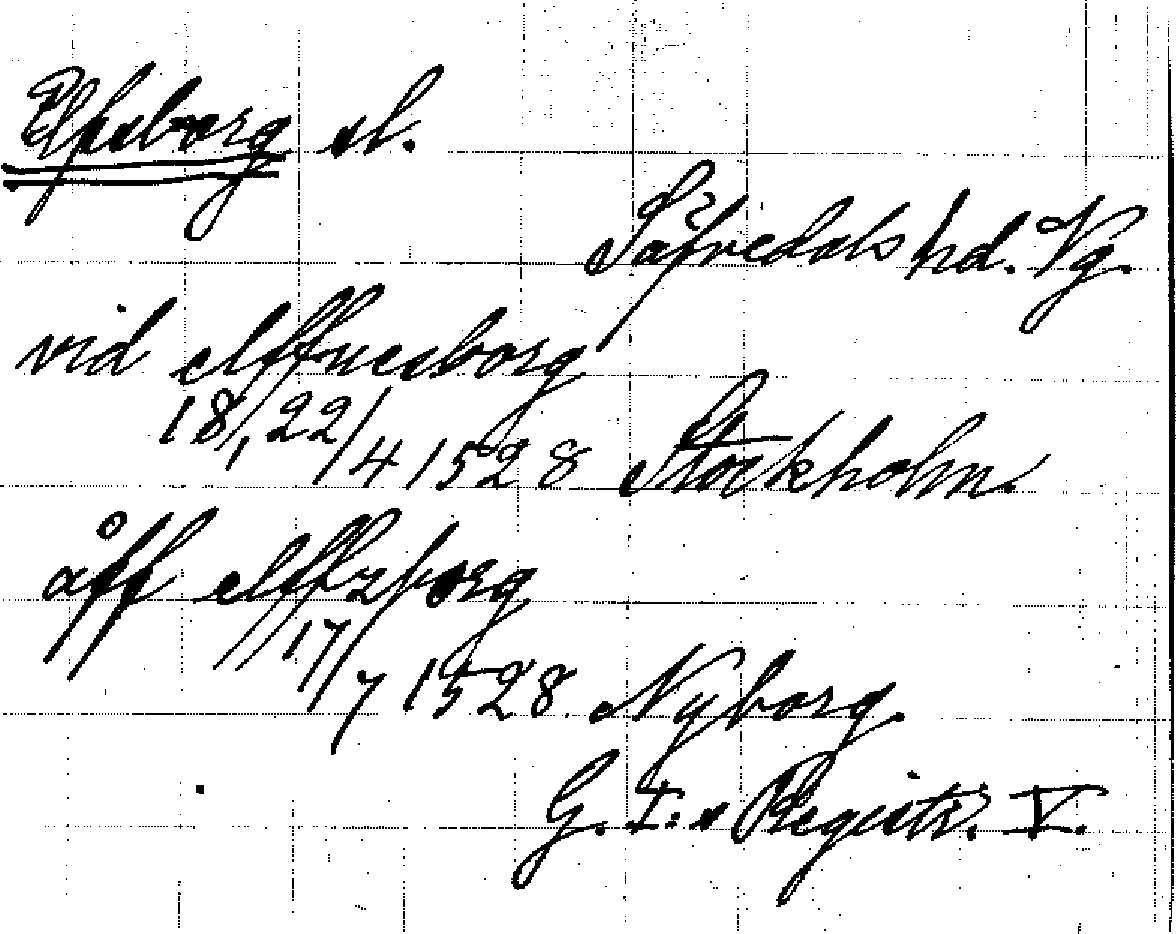 Elfsborg sl.
Säfvedals hd. Vg.
vid elffuesborg
18, 22/4 1528 Stockholm.
åff elffzborg
17/7 1528 Nyborg.
G. I:s Registr. V.